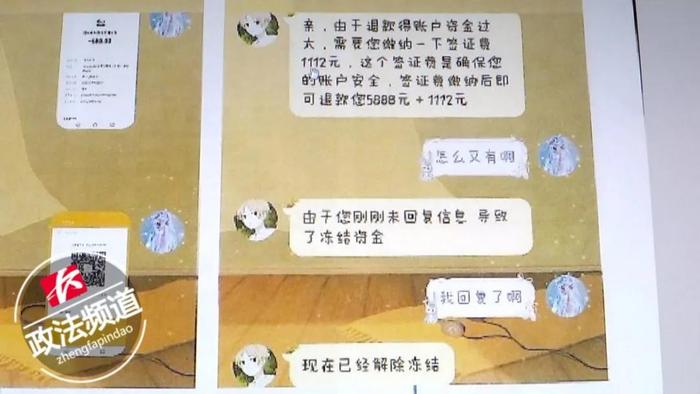 亲，由于退款得账户资金过
大，需要您缴纳一下签证费
1112元，这个签证费是确保您
的账户安全，签证费缴纳后即
可退款您5888元＋1112元
怎么又有啊
由于您刚刚未回复信息 导致
了冻结资金
我回复了啊
现在已经解除冻结
政法频道
zhengfapindao